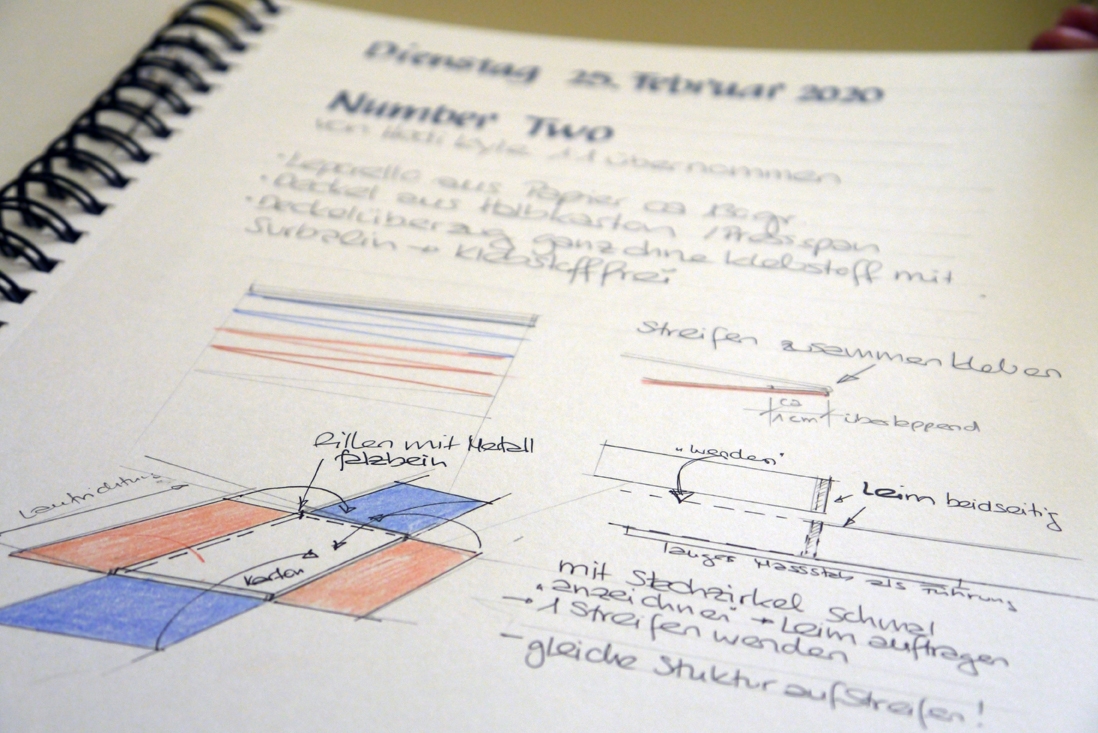 Dienstag 25. Februar 2020
Number Two
von 11 übernommen
• Leporello aus Papier ca 130gr.
• Deckel aus Halbkarton / Pressspan
• Deckelüberzug ganz ohne Klebstoff mit
Surbalin → Klebstofffrei
Streifen zusammenkleben
ca
1cm
überlappend
Rillen mit Metall
falzbein
Laufrichtung
Karton
"wenden"
Leim beidseitig
langer Massstab als Führung
mit Stechzirkel schmal
• anzeichnen → Leim auftragen
→ 1 Streifen wenden
- gleiche Stuktur auf Streifen!